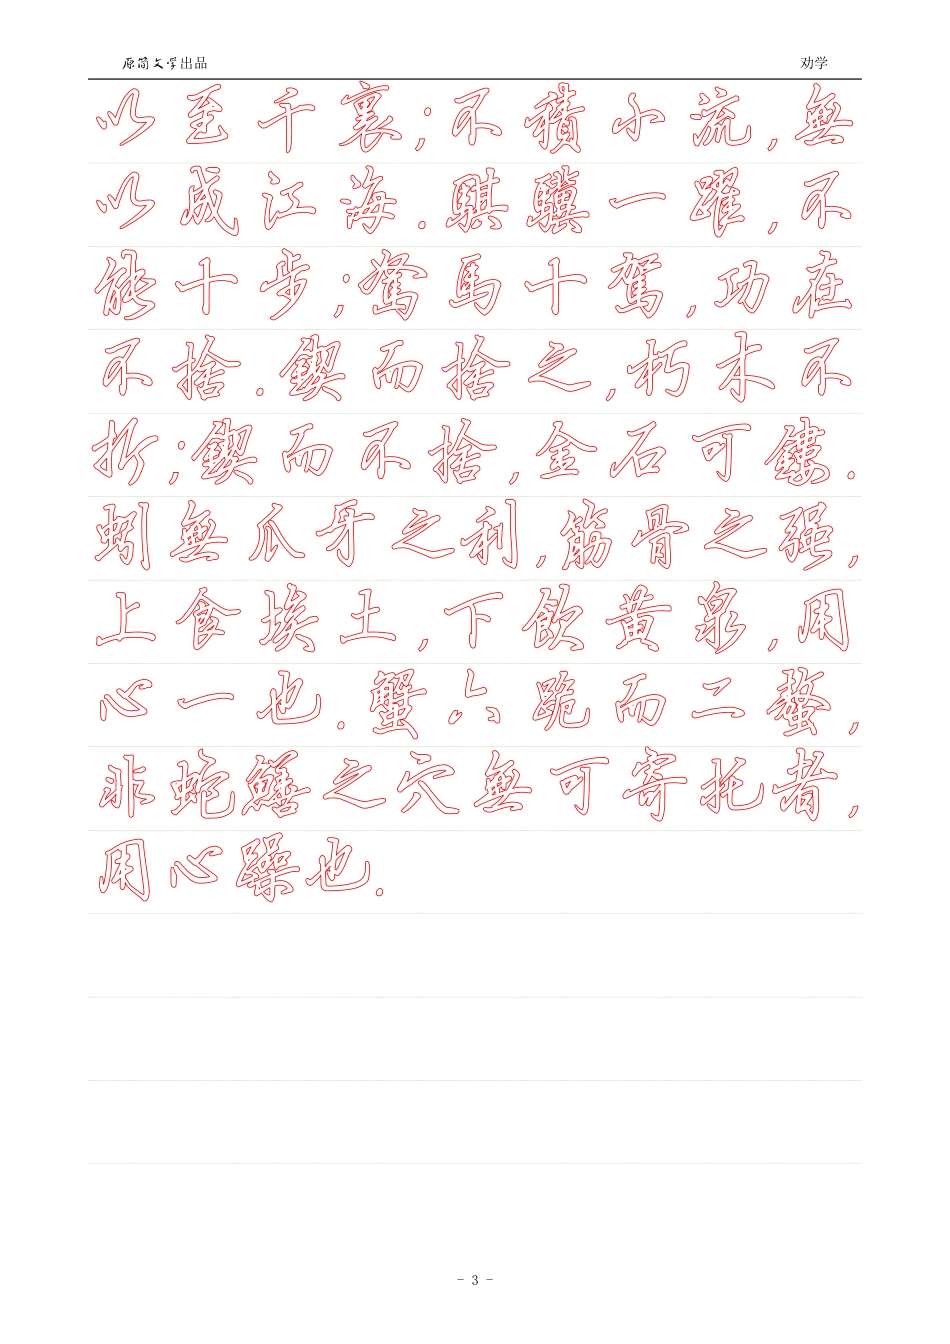 原简文学出品 劝学
以至千裏;不積小流,無
以成江海.騏驥一躍,不
能十步;駑馬十駕,功在
不捨.鍥而捨之,朽木不
折;鍥而不捨,金石可鏤.
蚓無爪牙之利,筋骨之强,
上食埃土,下飲黄泉,用
心一也.蟹六跪而二螯,
非蛇鱔之穴無可寄托者,
用心躁也.
- 3 -